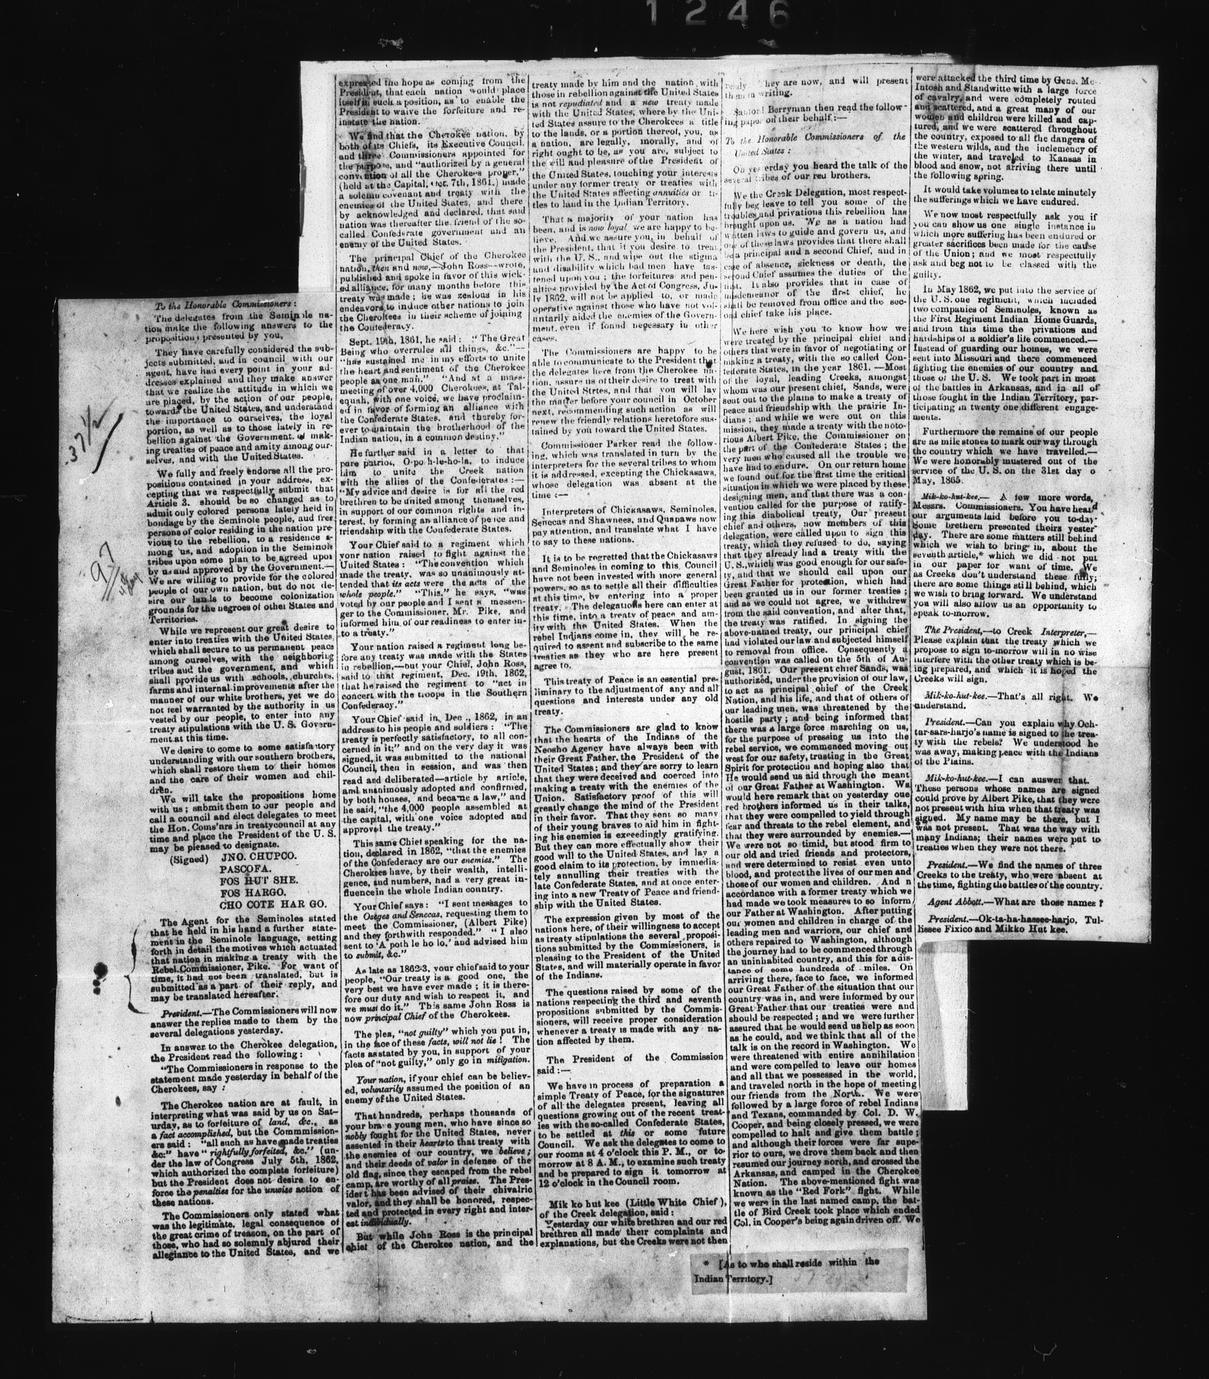 1246
To the Honorable Commissioners:
The delegates from the Seminole na-
tion make the following answers to the
propositions presented by you.
They have carefully considered the sub-
jects submitted, and in council with our
agent, have had every point in your ad-
dresses explained and they make answer
that we realize the attitude in which we
are placed, by the action of our people,
towards the United States, and understand
the importance to ourselves, the loyal
portion, as well as to those lately in re-
bellion against the Government, of mak-
ing treaties of peace and amity among our-
selves, and with the United States.
We fully and freely endorse all the pro-
positions contained in your address, ex-
cepting that we respectfully submit that
Article 3. should be so changed as to
admit only colored persons lately held in
bondage by the Seminole people, and free
persons of color residing in the nation pre-
vious to the rebellion, to a residence a-
mong us, and adoption in the Seminole
tribes upon some plan to be agreed upon
by us and approved by the Government.—
We are willing to provide for the colored
people of our own nation, but do not de-
sire our lands to become colonization
grounds for the negroes of other States and
Territories.
While we represent our great desire to
enter into treaties with the United States,
which shall secure to us permanent peace
among ourselves, with the neighboring
tribes and the government, and which
shall provide us with schools, churches,
farms and internal improvements after the
manner of our white brothers, yet we do
not feel warranted by the authority in us
vested by our people, to enter into any
treaty stipulations with the U. S. Govern-
ment at this time.
We desire to come to some satisfactory
understanding with our southern brothers,
which shall restore them to their homes
and the care of their women and chil-
dren.
We will take the propositions home
with us; submit them to our people and
call a council and elect delegates to meet
the Hon. Coms'ars in treaty council at any
time and place the President of the U. S.
may be pleased to designate.
(Signed) JNO. CHUPCO.
PASCOFA.
FOS HUT SHE.
FOS HARGO.
CHO COTE HAR GO.
The Agent for the Seminoles stated
that he held in his hand a further state-
ment in the Seminole language, setting
forth in detail the motives which actuated
that nation in making a treaty with the
Rebel Commissioner, Pike. For want of
time, it had not been translated, but is
submitted as a part of their reply, and
may be translated hereafter.
President.—The Commissioners will now
answer the replies made to them by the
several delegations yesterday.
In answer to the Cherokee delegation,
the President read the following:
"The Commissioners in response to the
statement made yesterday in behalf of the
Cherokees, say:
The Cherokee nation are at fault, in
interpreting what was said by us on Sat-
urday, as to forfeiture of land, &c., as
a fact accomplished, but the Commission-
ers said: "all such as have made treaties
&c." have "rightfully forfeited, &c." (un-
der the law of Congress July 5th, 1862,
which authorized the complete forfeiture)
but the President does not desire to en-
force the penalties for the unwise action of
these nations.
The Commissioners only stated what
was the legitimate, legal consequence of
the great crime of treason, on the part of
those, who had so solemnly abjured their
allegiance to the United States, and we
37 1/2
expressed the hope as coming from the
President, that each nation would place
itself in such a position, as to enable the
President to waive the forfeiture and re-
instate the nation.
We find that the Cherokee nation, by
both of its Chiefs, its Executive Council,
and three Commissioners appointed for
the purpose, and "authorized by a general
convention of all the Cherokees proper,"
(held at the Capital, Oct. 7th, 1861,) made
a solemn covenant and treaty with the
enemies of the United States, and there
by acknowledged and declared, that said
nation was thereafter the friend of the so-
called Confederate government and an
enemy of the United States.
The principal Chief of the Cherokee
nation, then and now,—John Ross—wrote,
published and spoke in favor of this wick-
ed alliance, for many months before this
treaty was made; he was zealous in his
endeavors to induce other nations to join
the Cherokees in their scheme of joining
the Confederacy.
Sept. 19th, 1861, he said: "The Great
Being who overrules all things, &c."—
"has sustained me in my efforts to unite
the heart and sentiment of the Cherokee
people as one man." "And at a mass-
meeting of over 4,000 Cherokees, at Tal-
equah, with one voice, we have proclaim-
ed in favor of forming an alliance with
the Confederate States, and thereby for-
ever to maintain the brotherhood of the
Indian nation, in a common destiny."
He further said in a letter to that
pure patriot, O-po h-le-ho-la, to induce
him to unite the Creek nation
with the allies of the Confederates:—
"My advice and desire is for all the red
brethren to be united among themselves,
in support of our common rights and in-
terest, by forming an alliance of peace and
friendship with the Confederate States.
Your Chief said to a regiment which
your nation raised to fight against the
United States: "The convention which
made the treaty, was so unanimously at-
tended that its acts were the acts of the
whole people." "This," he says, "was
voted by our people and I sent a messen-
ger to the Commissioner, Mr. Pike, and
informed him of our readiness to enter in-
to a treaty."
Your nation raised a regiment long be-
fore any treaty was made with the States
in rebellion,—but your Chief, John Ross,
said to that regiment, Dec. 19th, 1862,
that he raised the regiment to "act in
concert with the troops in the Southern
Confederacy."
Your Chief said in, Dec., 1862, in an
address to his people and soldiers: "The
treaty is perfectly satisfactory, to all con-
cerned in it;" and on the very day it was
signed, it was submitted to the national
Council, then in session, and was then
read and deliberated—article by article,
and unanimously adopted and confirmed,
by both houses, and became a law," and
he said, "the 4,000 people assembled at
the capital, with one voice adopted and
approved the treaty."
This same Chief speaking for the na-
tion, declared in 1862, "that the enemies
of the Confederacy are our enemies." The
Cherokees have, by their wealth, intelli-
gence, and numbers, had a very great in-
fluence in the whole Indian country.
Your Chief says: "I sent messages to
the Osages and Senecas, requesting them to
meet the Commissioner, (Albert Pike)
and they forthwith responded." "I also
sent to 'A poth le ho lo,' and advised him
to submit, &c."
As late as 1862-3, your chief said to your
people, "Our treaty is a good one, the
very best we have ever made; it is there-
fore our duty and wish to respect it, and
we must do it." This same John Ross is
now principal Chief of the Cherokees.
The plea, "not guilty" which you put in,
in the face of these facts, will not lie! The
facts as stated by you, in support of your
plea of "not guilty," only go in mitigation.
Your nation, if your chief can be believ-
ed, voluntarily assumed the position of an
enemy of the United States.
That hundreds, perhaps thousands of
your brave young men, who have since so
nobly fought for the United States, never
assented in their hearts to that treaty with
the enemies of our country, we believe;
and their deeds of valor in defense of the
old flag, since they escaped from the rebel
camp, are worthy of all praise. The Pres-
ident has been advised of their chivalric
valor, and they shall be honored, respec-
ted and protected in every right and inter-
est individually.
But while John Ross is the principal
chief of the Cherokee nation, and the
treaty made by him and the nation, with
those in rebellion against the United States
is not repudiated and a new treaty made
with the United States, where by the Uni-
ted States assure to the Cherokees a title
to the lands, or a portion thereof, you, as
a nation, are legally, morally, and of
right ought to be, as you are, subject to
the will and pleasure of the President of
the United States, touching your interests
under any former treaty or treaties with
the United States affecting annuities or ti-
tles to land in the Indian Territory.
That a majority of your nation has
been, and is now loyal we are happy to be-
lieve. And we assure you, in behalf of
the President, that if you desire to treat
with the U. S., and wipe out the stigma
and disability which bad men have fas-
tened upon you; the forfeitures and pen-
alties provided by the Act of Congress, Ju-
ly 1862, will not be applied to, or made
operative against those who have not vol-
untarily aided the enemies of the Govern-
ment, even if found necessary in other
cases.
The Commissioners are happy to be
able to communicate to the President that
the delegates here from the Cherokee na-
tion, assure us of their desire to treat with
the United States, and that you will lay
the matter before your council in October
next, recommending such action as will
renew the friendly relations heretofore sus-
tained by you toward the United States.
Commissioner Parker read the follow-
ing, which was translated in turn by the
interpreters for the several tribes to whom
it is addressed, excepting the Chickasaws,
whose delegation was absent at the
time:—
Interpreters of Chickasaws, Seminoles,
Senecas and Shawnees, and Quapaws now
pay attention, and translate what I have
to say to these nations.
It is to be regretted that the Chickasaws
and Seminoles in coming to this Council
have not been invested with more general
powers, so as to settle all their difficulties
at this time, by entering into a proper
treaty. The delegations here can enter at
this time, into a treaty of peace and am-
ity with the United States. When the
rebel Indians come in, they will be re-
quired to assent and subscribe to the same
treaties as they who are here present
agree to.
This treaty of Peace is an essential pre-
liminary to the adjustment of any and all
questions and interests under any old
treaty.
The Commissioners are glad to know
that the hearts of the Indians of the
Neosho Agency have always been with
their Great Father, the President of the
United States; and they are sorry to learn
that they were deceived and coerced into
making a treaty with the enemies of the
Union. Satisfactory proof of this will
greatly change the mind of the President
in their favor. That they sent so many
of their young braves to aid him in fight-
ing his enemies is exceedingly gratifying.
But they can more effectually show their
good will to the United States, and lay a
good claim to its protection, by immedia-
tely annulling their treaties with the
late Confederate States, and at once enter-
ing into a new Treaty of Peace and friend-
ship with the United States.
The expression given by most of the
nations here, of their willingness to accept
as treaty stipulations the several proposi-
tions submitted by the Commissioners, is
pleasing to the President of the United
States, and will materially operate in favor
of the Indians.
The questions raised by some of the
nations respecting the third and seventh
propositions submitted by the Commis-
sioners, will receive proper consideration
whenever a treaty is made with any na-
tion affected by them.
The President of the Commission
said:—
We have in process of preparation a
simple Treaty of Peace, for the signatures
of all the delegates present, leaving all
questions growing out of the recent treat-
ies with the so-called Confederate States,
to be settled at this or some future
Council. We ask the delegates to come to
our rooms at 4 o'clock this P. M., or to-
morrow at 8 A. M., to examine such treaty
and be prepared to sign it tomorrow at
12 o'clock in the Council room.
Mik ko hut kee (Little White Chief),
of the Creek delegation, said:
Yesterday our white brethren and our red
brethren all made their complaints and
explanations, but the Creeks were not then
ready they are now, and will present
them in writing.
Berryman then read the follow-
ing paper on their behalf:—
To the Honorable Commissioners of the
United States:
On yesterday you heard the talk of the
several tribes of our red brothers.
We the Creek Delegation, most respect-
fully beg leave to tell you some of the
troubles and privations this rebellion has
brought upon us. We as a nation had
written laws to guide and govern us, and
one of these laws provides that there shall
be a principal and a second Chief, and in
case of absence, sickness or death, the
second Chief assumes the duties of the
first. It also provides that in case of
misdemeanor of the first chief, he
shall be removed from office and the sec-
ond chief take his place.
We here wish you to know how we
were treated by the principal chief and
others that were in favor of negotiating or
making a treaty, with the so called Con-
federate States, in the year 1861.—Most
of the loyal, leading Creeks, amongst
whom was our present chief, Sands, were
sent out to the plains to make a treaty of
peace and friendship with the prairie In-
dians; and while we were out on this
mission, they made a treaty with the noto-
rious Albert Pike, the Commissioner on
the part of the Confederate States, the
very men who caused all the trouble we
have had to endure. On our return home
we found out for the first time the critical
situation in which we were placed by these
designing men, and that there was a con-
vention called for the purpose of ratify-
ing this diabolical treaty. Our present
chief and others, now members of this
delegation, were called upon to sign this
treaty, which they refused to do, saying
that they already had a treaty with the
U. S., which was good enough for our safe-
ty, and that we should call upon our
Great Father for protection, which had
been granted us in our former treaties;
and as we could not agree, we withdrew
from the said convention, and after that,
the treaty was ratified. In signing the
above-named treaty, our principal chief
had violated our law and subjected himself
to removal from office. Consequently a
convention was called on the 5th of Au-
gust, 1861. Our present chief Sands, was
authorized, under the provision of our law,
to act as principal chief of the Creek
Nation, and his life, and that of others of
our leading men, was threatened by the
hostile party; and being informed that
there was a large force marching on us,
for the purpose of pressing us into the
rebel service, we commenced moving out
west for our safety, trusting in the Great
Spirit for protection and hoping also that
He would send us aid through the means
of our Great Father at Washington. We
would here remark that on yesterday our
red brothers informed us in their talks,
that they were compelled to yield through
fear and threats to the rebel element, and
that they were surrounded by enemies.—
We were not so timid, but stood firm to
our old and tried friends and protectors,
and were determined to resist even unto
blood, and protect the lives of our men and
those of our women and children. And in
accordance with a former treaty which we
had made we took measures to so inform
our Father at Washington. After putting
our women and children in charge of the
leading men and warriors, our chief and
others repaired to Washington, although
the journey had to be commenced through
an uninhabited country, and this for a dis-
tance of some hundreds of miles. On
arriving there, face to face, we informed
our Great Father of the situation that our
country was in, and were informed by our
Great Father that our treaties were and
should be respected; and we were further
assured that he would send us help as soon
as he could, and we think that all of the
talk is on the record in Washington. We
were threatened with entire annihilation
and were compelled to leave our homes
and all that we possessed in the world,
and traveled north in the hope of meeting
our friends from the North. We were
followed by a large force of rebel Indians
and Texans, commanded by Col. D. W.
Cooper, and being closely pressed, we were
compelled to halt and give them battle;
and although their forces were far supe-
rior to ours, we drove them back and then
resumed our journey north, and crossed the
Arkansas, and camped in the Cherokee
Nation. The above-mentioned fight was
known as the "Red Fork" fight. While
we were in the last named camp, the bat-
tle of Bird Creek took place which ended
Col. in Cooper's being again driven off. We
* [As to who shall reside within the
Indian Territory.]
were attacked the third time by Gens. Mc-
Intosh and Standwitte with a large force
of cavalry, and were completely routed
and scattered, and a great many of our
women and children were killed and cap-
tured, and we were scattered throughout
the country, exposed to all the dangers of
the western wilds, and the inclemency of
the winter, and traveled to Kansas in
blood and snow, not arriving there until
the following spring.
It would take volumes to relate minutely
the sufferings which we have endured.
We now most respectfully ask you if
you can show us one single instance in
which more suffering has been endured or
greater sacrifices been made for the cause
of the Union; and we most respectfully
ask and beg not to be classed with the
guilty.
In May 1862, we put into the service of
the U. S. one regiment, which included
two companies of Seminoles, known as
the First Regiment Indian Home Guards,
and from this time the privations and
hardships of a soldier's life commenced.—
Instead of guarding our homes, we were
sent into Missouri and there commenced
fighting the enemies of our country and
those of the U. S. We took part in most
of the battles in Arkansas, and in all of
those fought in the Indian Territory, par-
ticipating in twenty one different engage-
ments.
Furthermore the remains of our people
are as milk stones to mark our way through
the country which we have travelled.—
We were honorably mustered out of the
service of the U. S. on the 31st day o
May, 1865.
Mik-ko-hut-kee,— A few more words,
Messrs. Commissioners. You have heard
our arguments laid before you to-day.
Some brethren presented theirs yester
day. There are some matters still behind
which we wish to bring in, about the
seventh article,* which we did not put
in our paper for want of time. We
as Creeks don't understand these fully;
there are some things still behind, which
we wish to bring forward. We understand
you will also allow us an opportunity to
speak to-morrow.
The President,—to Creek Interpreter,—
Please explain that the treaty which we
propose to sign to-morrow will in no wise
interfere with the other treaty which is be-
ing prepared, and which it is hoped the
Creeks will sign.
Mik-ko-hut-kee.—That's all right. We
understand.
President.—Can you explain why Och-
tar-sars-harjo's name is signed to the trea-
ty with the rebels? We understood he
was away, making peace with the Indians
of the Plains.
Mik-ko-hut-kee.—I can answer that.
These persons whose names are signed
could prove by Albert Pike, that they were
not present with him when that treaty was
signed. My name may be there, but I
was not present. That was the way with
many Indians; their names were put to
treaties when they were not there.
President.—We find the names of three
Creeks to the treaty, who were absent at
the time, fighting the battles of the country.
Agent Abbott.—What are those names?
President.—Ok-ta-ha-hassee-harjo, Tul-
lissee Fixico and Mikko Hut kee.